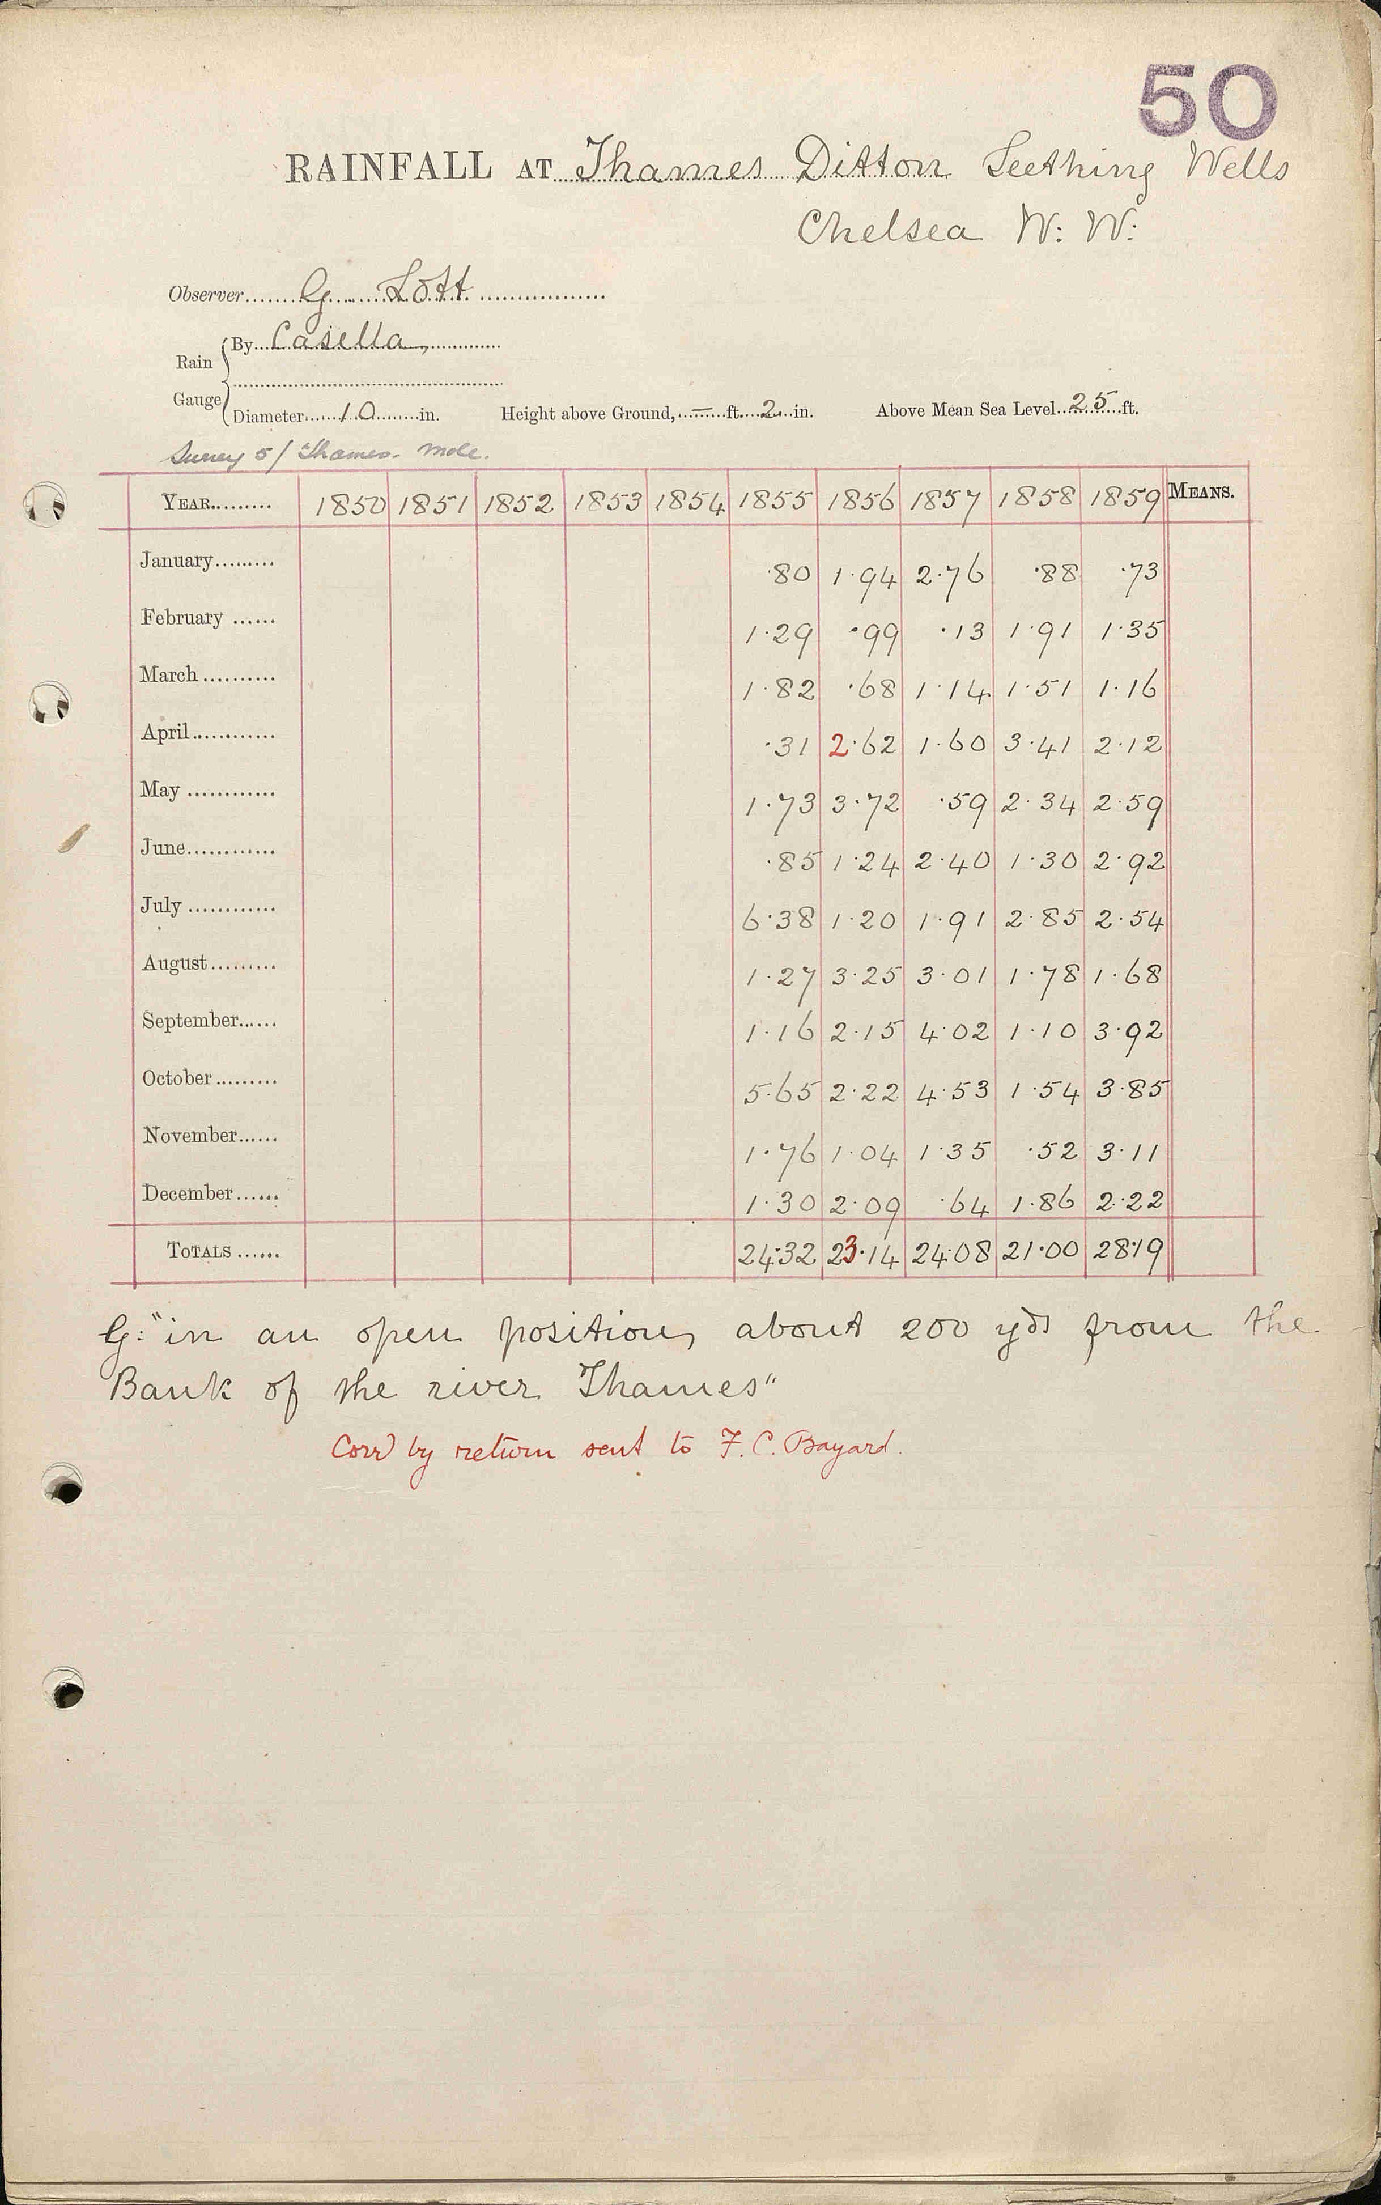 50
RAINFALL AT Thames Ditton Seething Wells
Chelsea W: W:
Observer G Lott
Rain Gauge By Casella,
Diameter 10 in. Height above Ground, — ft. 2 in. Above Mean Sea Level 25 ft.
Surrey 5/ Thames. Mole.
YEAR 1850 1851 1852 1853 1854 1855 1856 1857 1858 1859 MEANS.
January ·80 1·94 2·76 ·88 ·73
February 1·29 ·99 ·13 1·91 1·35
March 1·82 ·68 1·14 1·51 1·16
April ·31 2·62 1·60 3·41 2·12
May 1·73 3·72 ·59 2·34 2·59
June ·85 1·24 2·40 1·30 2·92
July 6·38 1·20 1·91 2·85 2·54
August 1·27 3·25 3·01 1·78 1·68
September 1·16 2·15 4·02 1·10 3·92
October 5·65 2·22 4·53 1·54 3·85
November 1·76 1·04 1·35 ·52 3·11
December 1·30 2·09 ·64 1·86 2·22
TOTALS 24·32 23·14 24·08 21·00 28·19
G: "in an open position, about 200 yds from the
Bank of the river Thames"
Corrd by return sent to F. C. Bayard.